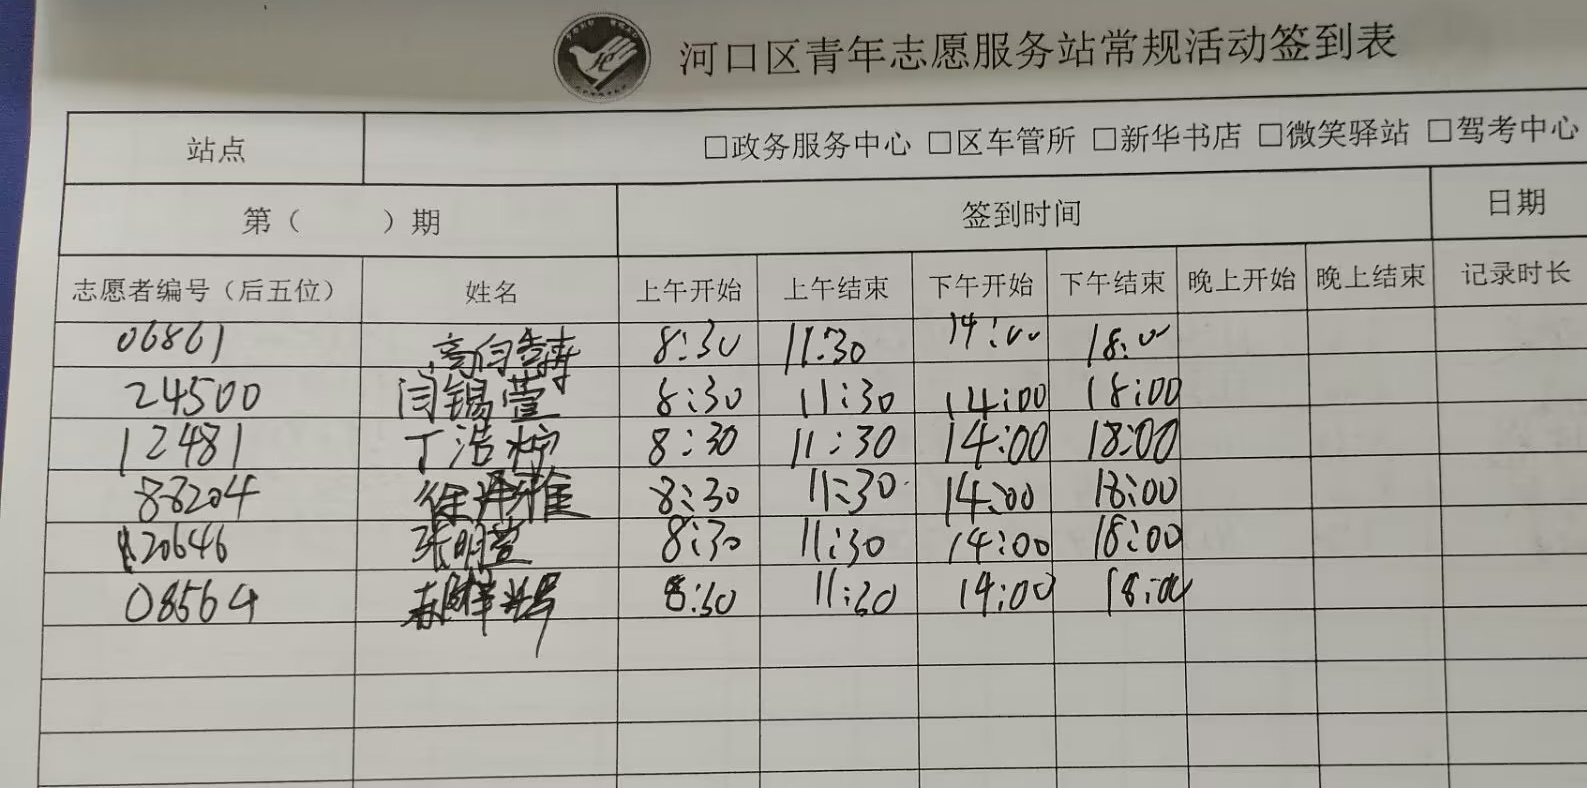 河口区青年志愿服务站常规活动签到表
站点 □政务服务中心 □区车管所 □新华书店 □微笑驿站 □驾考中心
第（ ）期 签到时间 日期
志愿者编号（后五位） 姓名 上午开始 上午结束 下午开始 下午结束 晚上开始 晚上结束 记录时长
06861 8:30 11:30 14:00 18:00
24500 闫锡萱 8:30 11:30 14:00 18:00
12481 丁浩柠 8:30 11:30 14:00 18:00
88204 8:30 11:30 14:00 18:00
20646 张明萱 8:30 11:30 14:00 18:00
08564 8:30 11:30 14:00 18:00